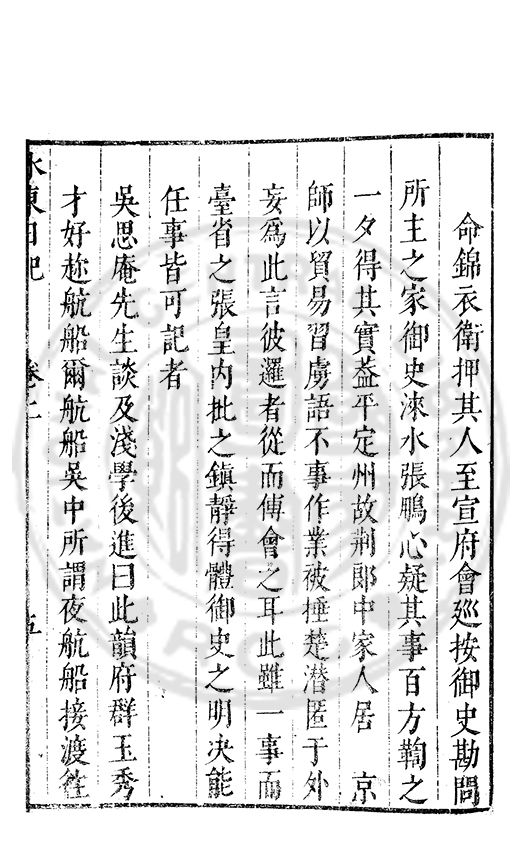 命錦衣衛押其人至宣府會廵按御史勘問
所主之家御史淶水張鵬心疑其事百方鞫之
一夕得其實葢平定州故荆郎中家人居　京
師以貿易習虜語不事作業被捶楚潜匿于外
妄爲此言彼邏者從而傅會之耳此雖一事而
臺省之張皇内批之鎮靜得體御史之明决能
任事皆可記者
吳思庵先生談及淺學後進曰此韻府群玉秀
才好趂航船爾航船吳中所謂夜航船接渡徃
水東日記　卷二　五